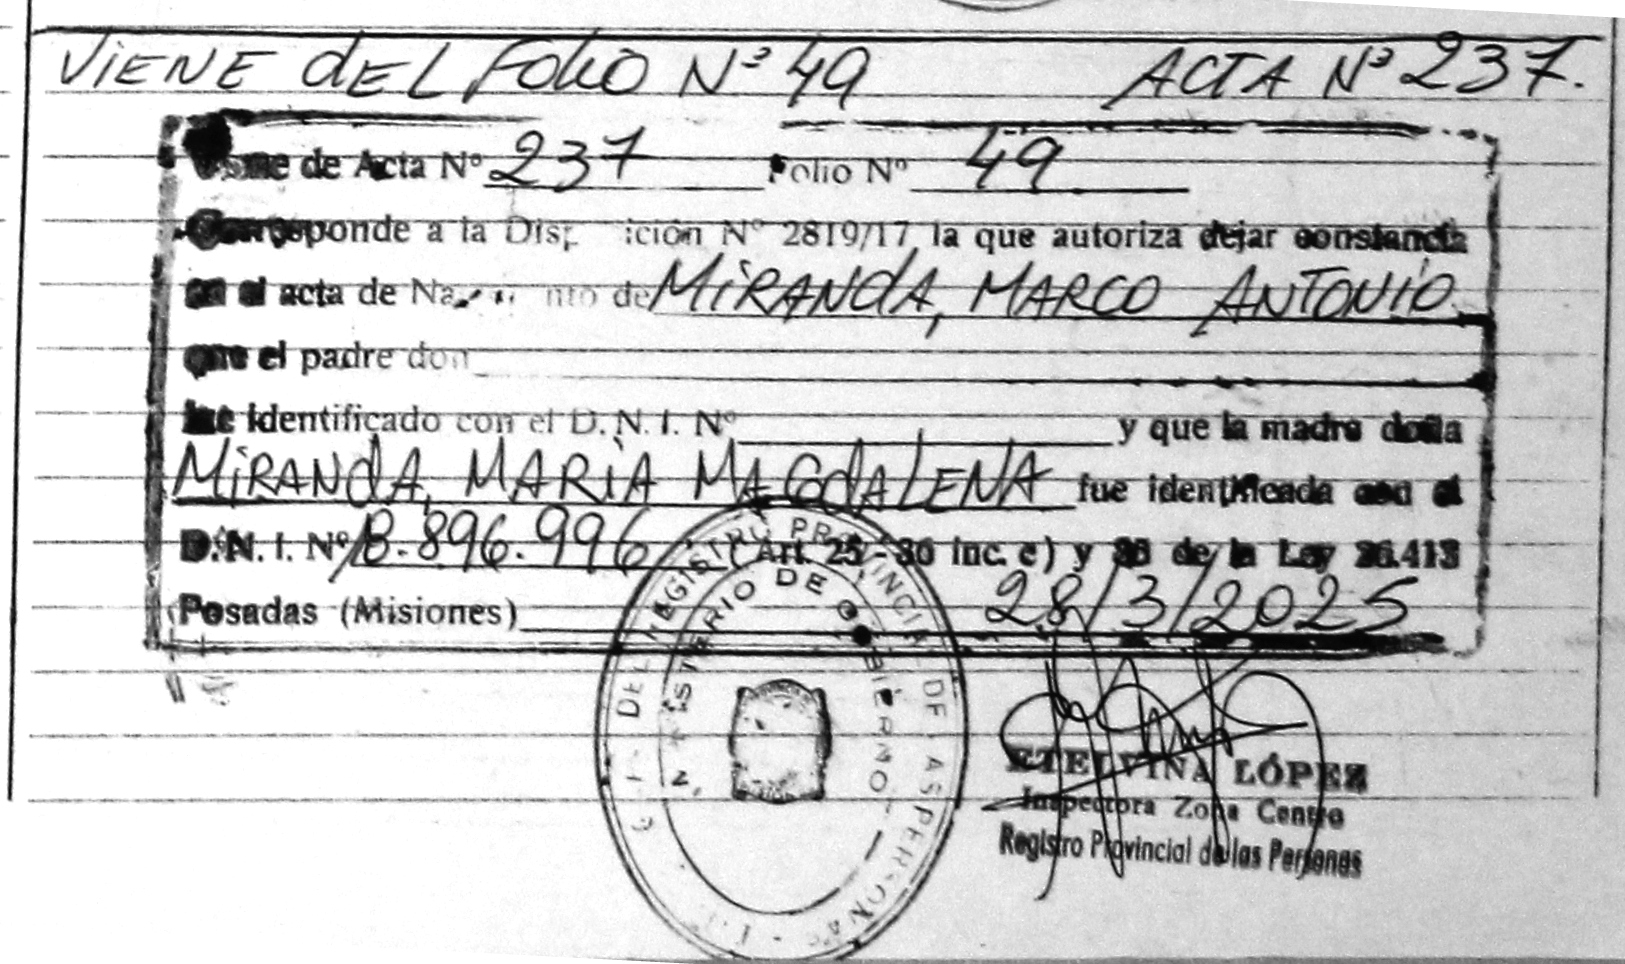 VIENE DEL FOLIO Nº 49 ACTA Nº 237.
Viene de Acta Nº 237 Folio Nº 49
Corresponde a la Disp ición Nº 2819/17, la que autoriza dejar constancia
en el acta de Na nto de MIRANDA, MARCO ANTONIO
que el padre don
fue identificado con el D. N. I. Nº y que la madre doña
MIRANDA, MARÍA MAGDALENA fue identificada con el
D. N. I. Nº 896.996 (Art. 25 - 36 inc. c) y de la Ley 26.413
Posadas (Misiones) 28/3/2025
REGISTRO PROVINCIAL DE
MINISTERIO DE GOBIERNO
ETELVINA LÓPEZ
Inspectora Zona Centro
Registro Provincial de las Personas